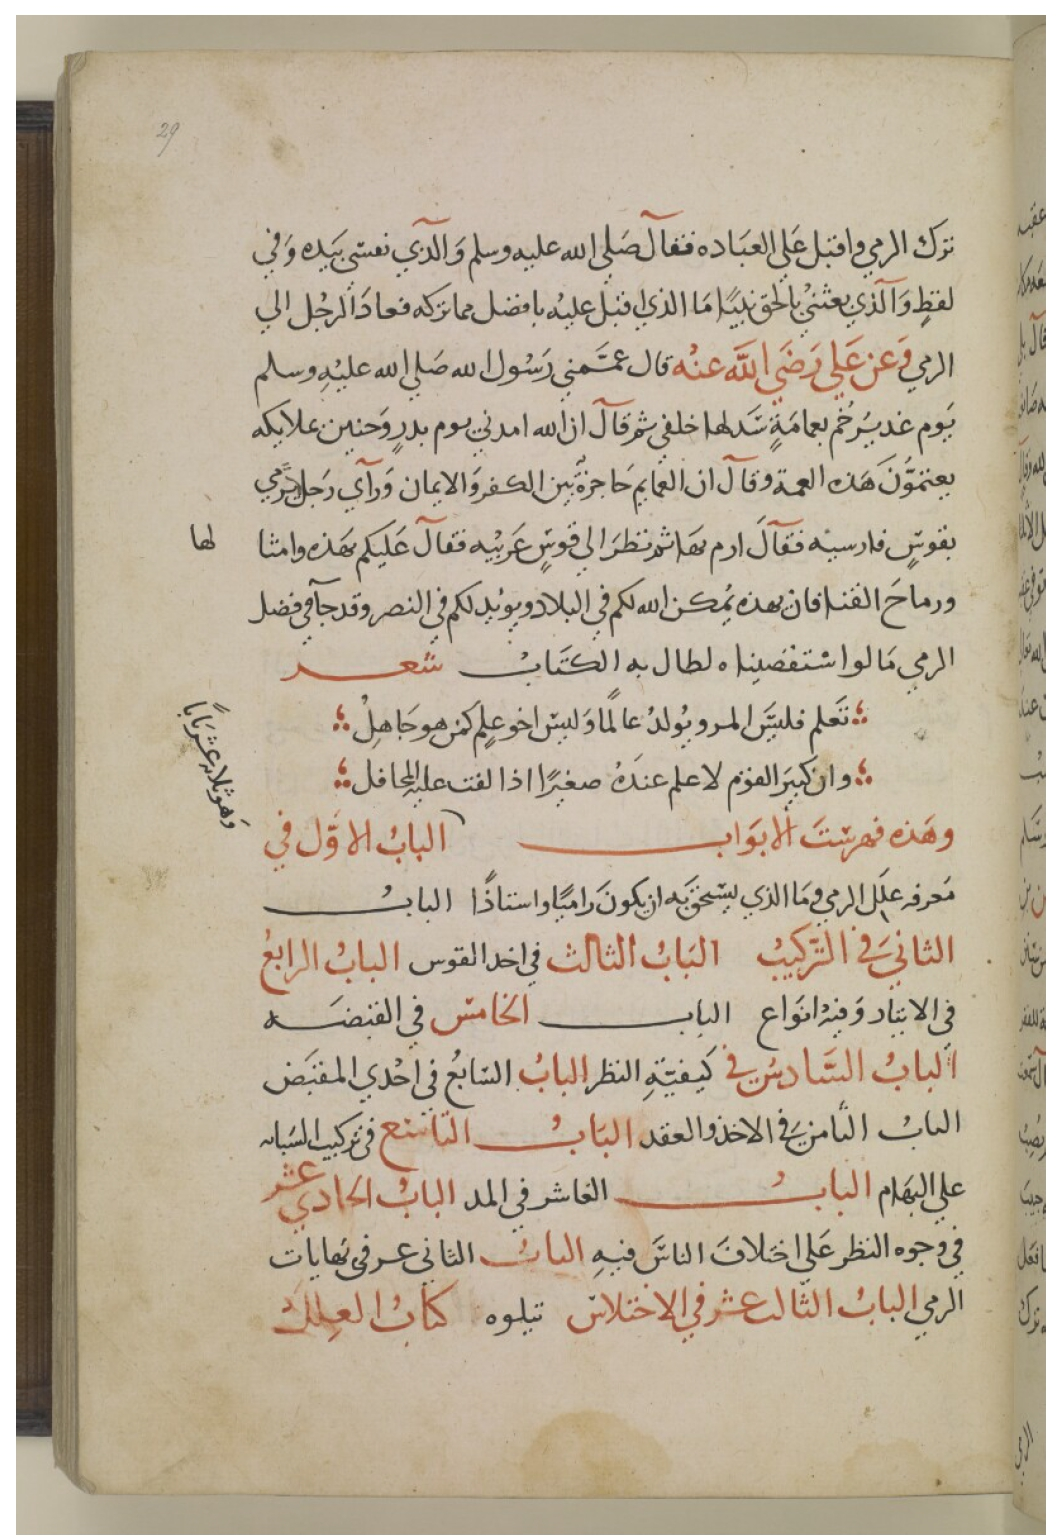 29
ترك الرمي واقبل علي العباده فقال صلي الله عليه وسلم والذي نفسي بيده وفي
لفظ والذي بعثني بالحق نبيا ما الذي اقبل عليه بافضل مما تركه فعاد الرجل الي
الرمي وعن علي رضي الله عنه قال عممني رسول الله صلي الله عليه وسلم
يوم غدير خم بعمامة سدلها خلفي ثم قال ان الله امدني يوم بدر وحنين بملايكه
يعتمون هذه العمة وقال ان العمايم حاجزة بين الكفر والايمان وراي رجل يرمي
بقوس فارسيه فقال ارم بها ثم نظر الي قوس عربيه فقال عليكم بهذه وامثا
لها
ورماح القنا فان بهذه يمكن الله لكم في البلاد ويويد لكم في النصر وقد جآ في فضل
الرمي ما لو استقصيناه لطال به الكتاب شعر
تعلم فليس المرو يولد عالما وليس اخو علم كمن هو جاهل
وان كبير القوم لا علم عنده صغيرا اذا لفت عليه المحافل
وهذه فهرست الابواب الباب الاول في
وهو ثلاثه عشر بابا
معرفه علل الرمي وما الذي يستحق به ان يكون راميا واستاذا الباب
الثاني في التركيب الباب الثالث في اخد القوس الباب الرابع
في الايتار وفيه انواع الباب الخامس في القبضه
الباب السادس في كيفية النظر الباب السابع في احدي المقبض
الباب الثامن في الاخذ والعقد الباب التاسع في تركيب السبابه
علي البهام الباب العاشر في المد الباب الحادي عشر
في وجوه النظر علي اختلاف الناس فيه الباب الثاني عسر في نهايات
الرمي الباب الثالث عشر في الاختلاس تيلوه كتاب العلل